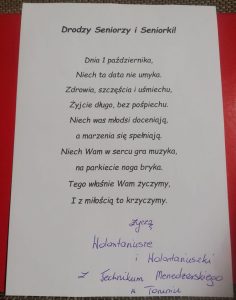 Drodzy Seniorzy i Seniorki!
Dnia 1 października,
Niech ta data nie umyka.
Zdrowia, szczęścia i uśmiechu,
Żyjcie długo, bez pośpiechu.
Niech was młodsi doceniają,
a marzenia się spełniają.
Niech Wam w sercu gra muzyka,
na parkiecie noga bryka.
Tego właśnie Wam życzymy,
I z miłością to krzyczymy.
życzą
Wolontariusze
i Wolontariuszki
z Technikum Menedżerskiego
w Toruniu